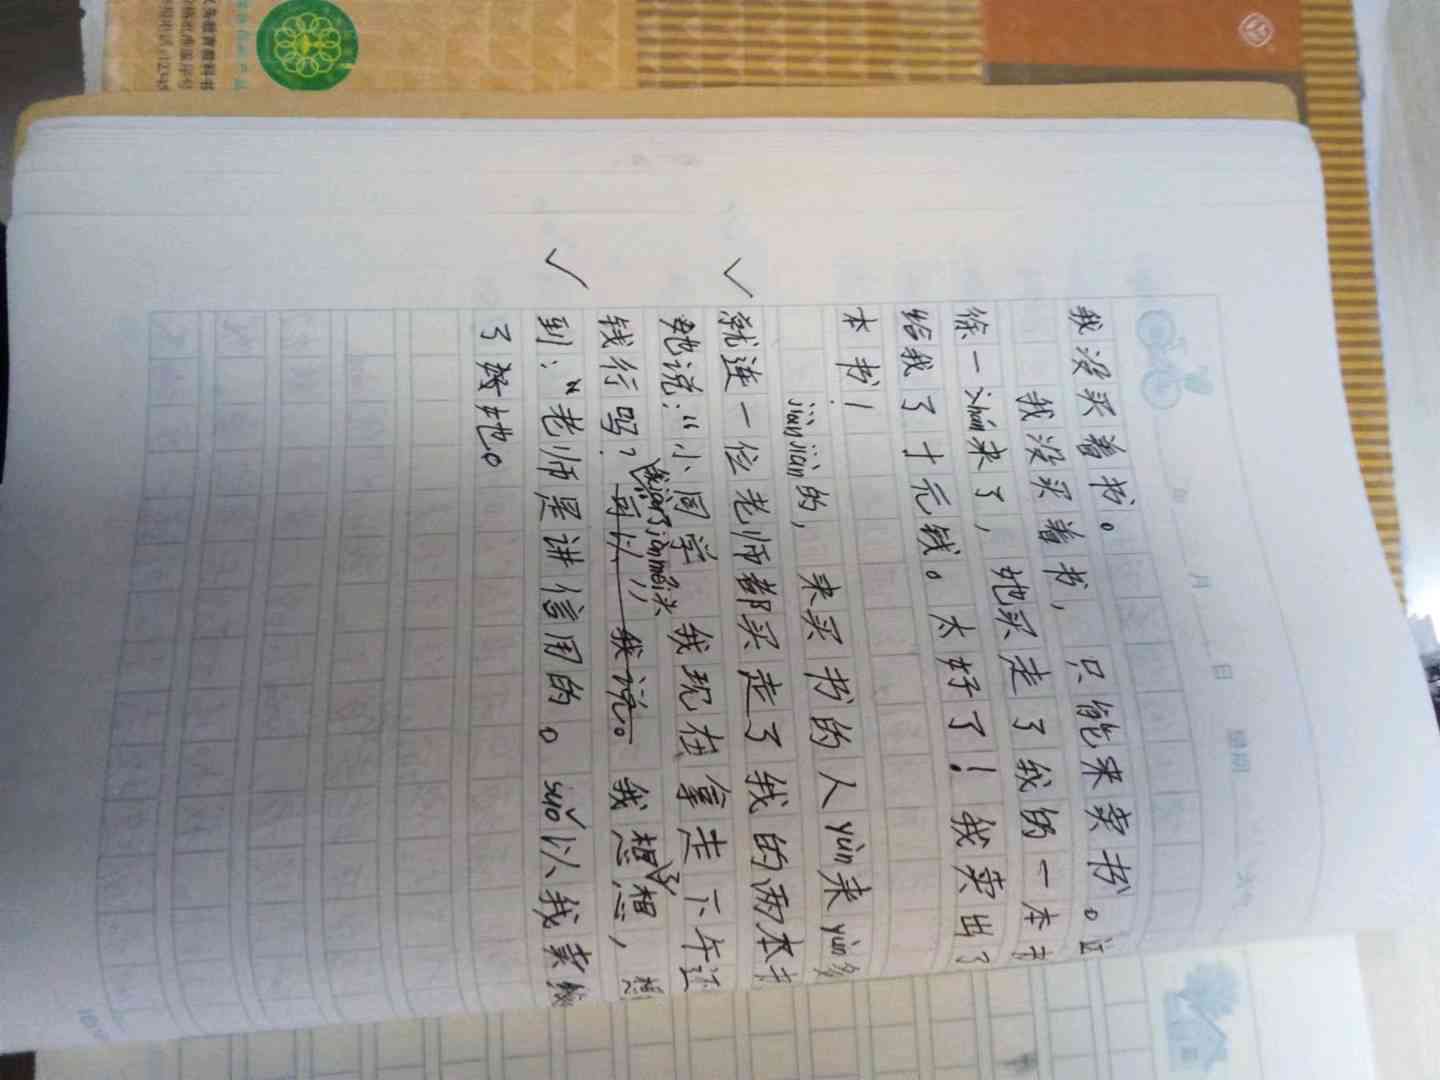 我没买着书。
我没买着书，只能来卖书。
徐一shān来了，她买走了我的一本书
给我了十元钱。太好了！我卖出了
本书！
jiàn jiàn的，来买书的人yùn来yùn多
就连一位老师都买走了我的两本书
她说：“小同学 我现在拿走下午还
钱行吗？可以！”我说。我想了想，想
我zhòu了zhòu méi头
到：“老师是讲信用的。suǒ以我卖给
了她。
月 日 星期 天气
义务教育教科书